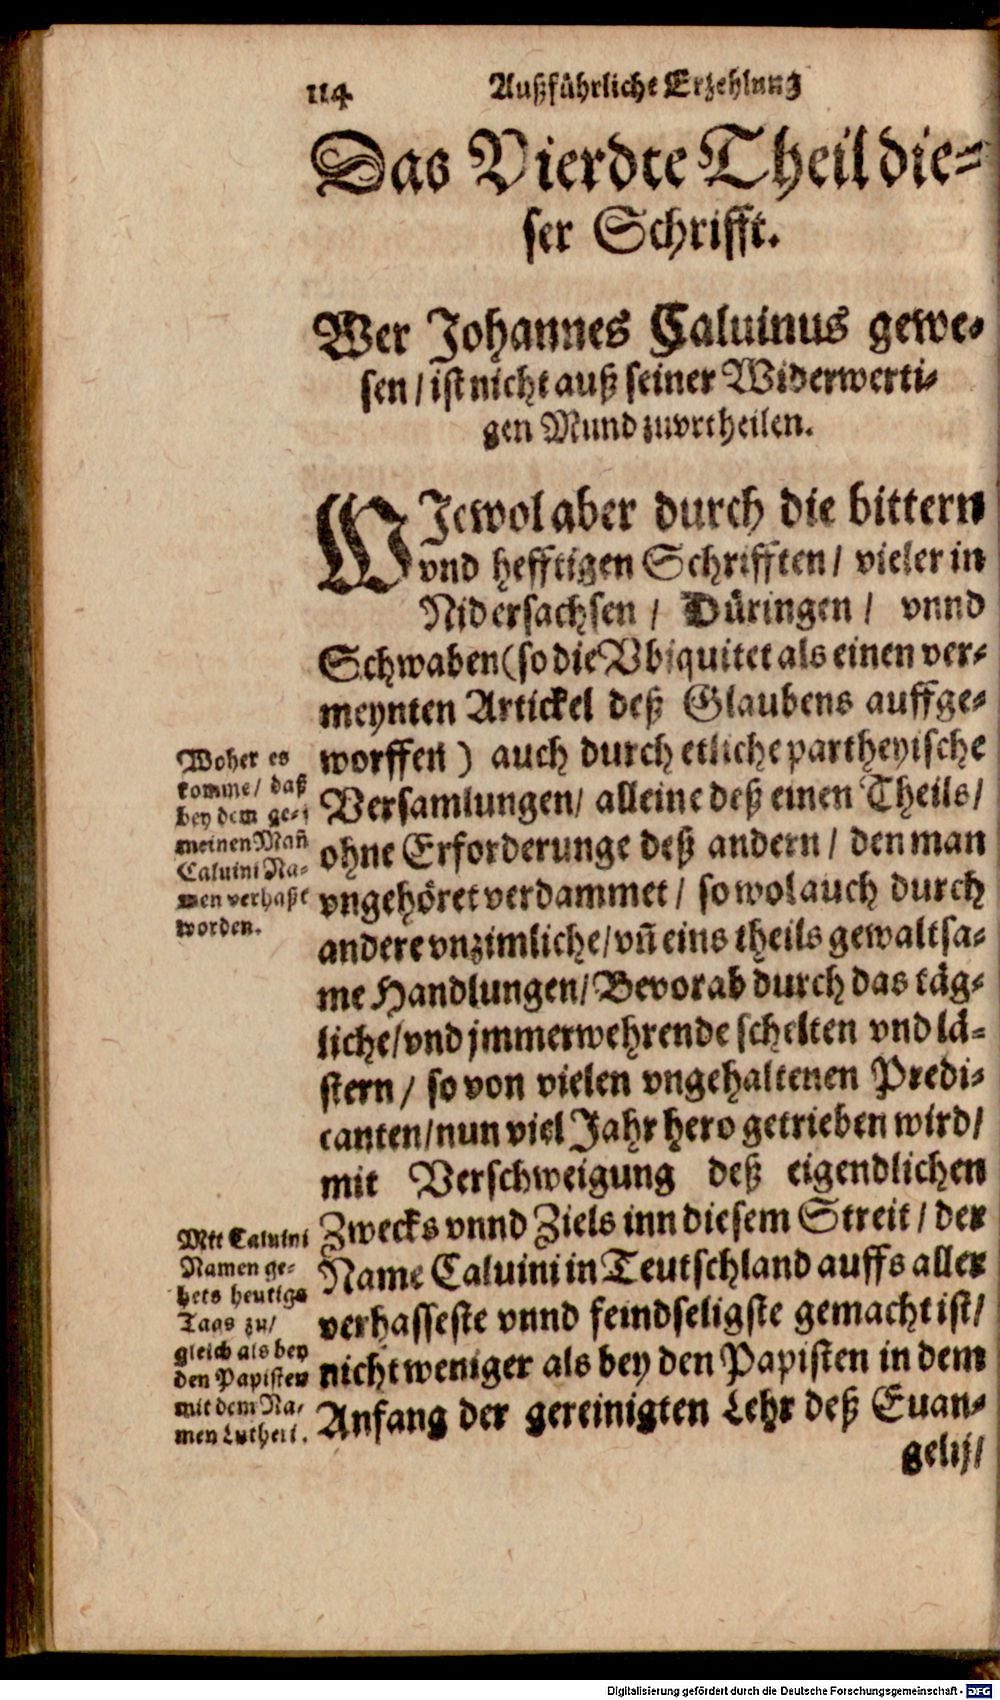 114 Außführliche Erzehlung
Das Vierdte Theil die-
ser Schrifft.
Wer Johannes Caluinus gewe-
sen / ist nicht auß seiner Widerwerti-
gen Mund zuvrtheilen.
WJewol aber durch die bittern
vnd hefftigen Schrifften / vieler in
Nidersachsen / Düringen / vnnd
Schwaben (so die Vbiquitet als einen ver-
meynten Artickel deß Glaubens auffge-
worffen) auch durch etliche partheyische
Versamlungen / alleine deß einen Theils /
ohne Erforderunge deß andern / den man
vngehöret verdammet / so wol auch durch
andere vnzimliche / vn̄ eins theils gewaltsa-
me Handlungen / Bevorab durch das täg-
liche / vnd jmmerwehrende schelten vnd lä-
stern / so von vielen vngehaltenen Predi-
canten / nun viel Jahr hero getrieben wird /
mit Verschweigung deß eigendlichen
Zwecks vnnd Ziels inn diesem Streit / der
Name Caluini in Teutschland auffs aller
verhasseste vnnd feindseligste gemacht ist /
nicht weniger als bey den Papisten in dem
Anfang der gereinigten Lehr deß Euan-
gelij /
Woher es
komme / daß
bey dem ge-
meinen Man̄
Caluini Na-
men verhaßt
worden.
Mit Caluini
Namen ge-
hets heutigs
Tags zu /
gleich als bey
den Papisten
mit dem Na-
men Lutheri.
Digitalisierung gefördert durch die Deutsche Forschungsgemeinschaft - DFG